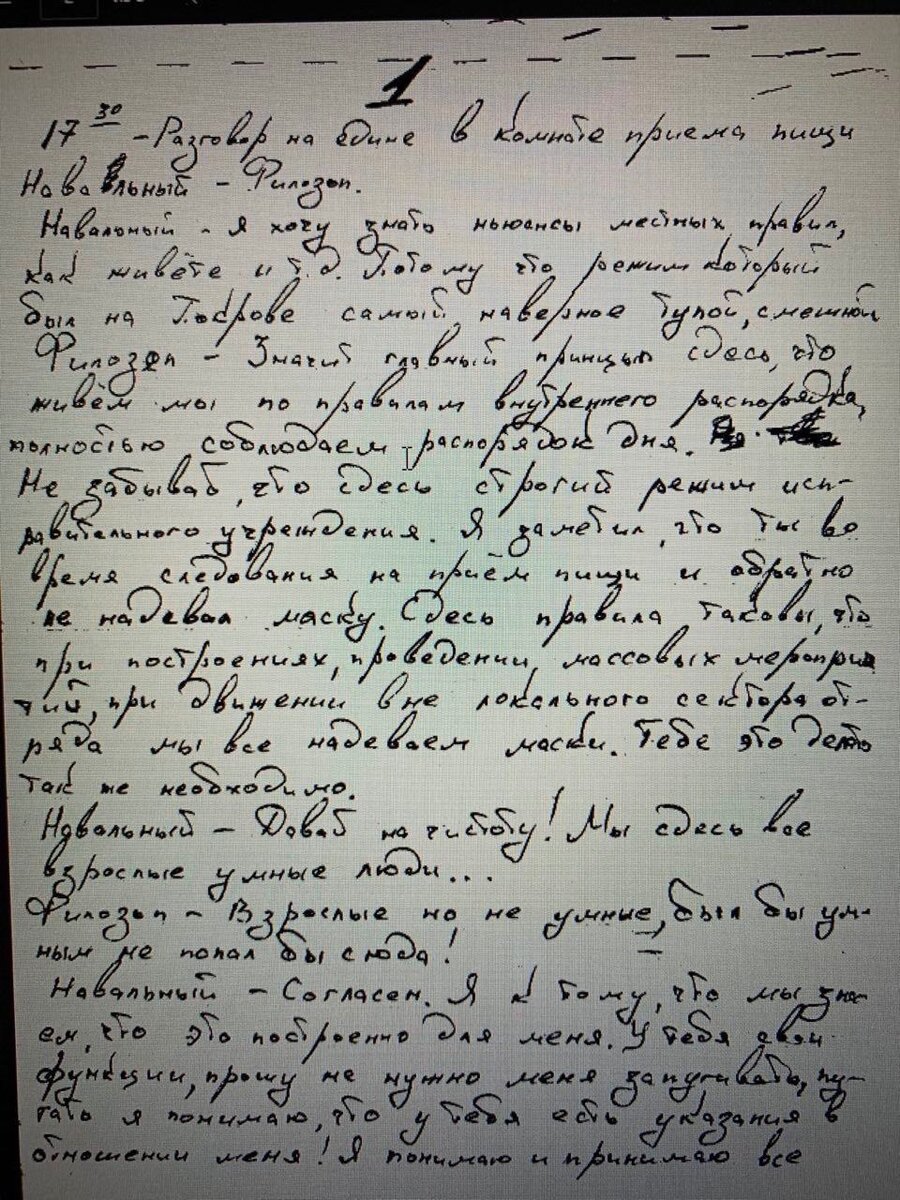 1
17 30 - Разговор на едине в комнате приема пищи
Навальный - Филозоп.
Навальный - я хочу знать ньюансы местных правил,
как живёте и т.д. Потому что режим который
был на Покрове самый наверное тупой, смешной
Филозоп - Значит главный принцып сдесь, что
живём мы по правилам внутреннего распорядка,
полностью соблюдаем распорядок дня.
Не забывай, что сдесь строгий режим исп-
равительного учреждения. Я заметил, что ты во
время следования на приём пищи и обратно
не надевал маску. Сдесь правила таковы, что
при построениях, проведении, массовых мероприя
тий, при движении вне локального сектора от-
ряда мы все надеваем маски. Тебе это делать
так же необходимо.
Навальный - Давай на чистоту! Мы сдесь все
взрослые умные люди...
Филозоп - Взрослые но не умные, был бы ум-
ным не попал бы сюда!
Навальный - Согласен. Я к тому, что мы зна-
ем, что это построенно для меня. У тебя свои
функции, прошу не нужно меня запугивать, пу-
гать я понимаю, что у тебя есть указания в
отношении меня! Я понимаю и принимаю все